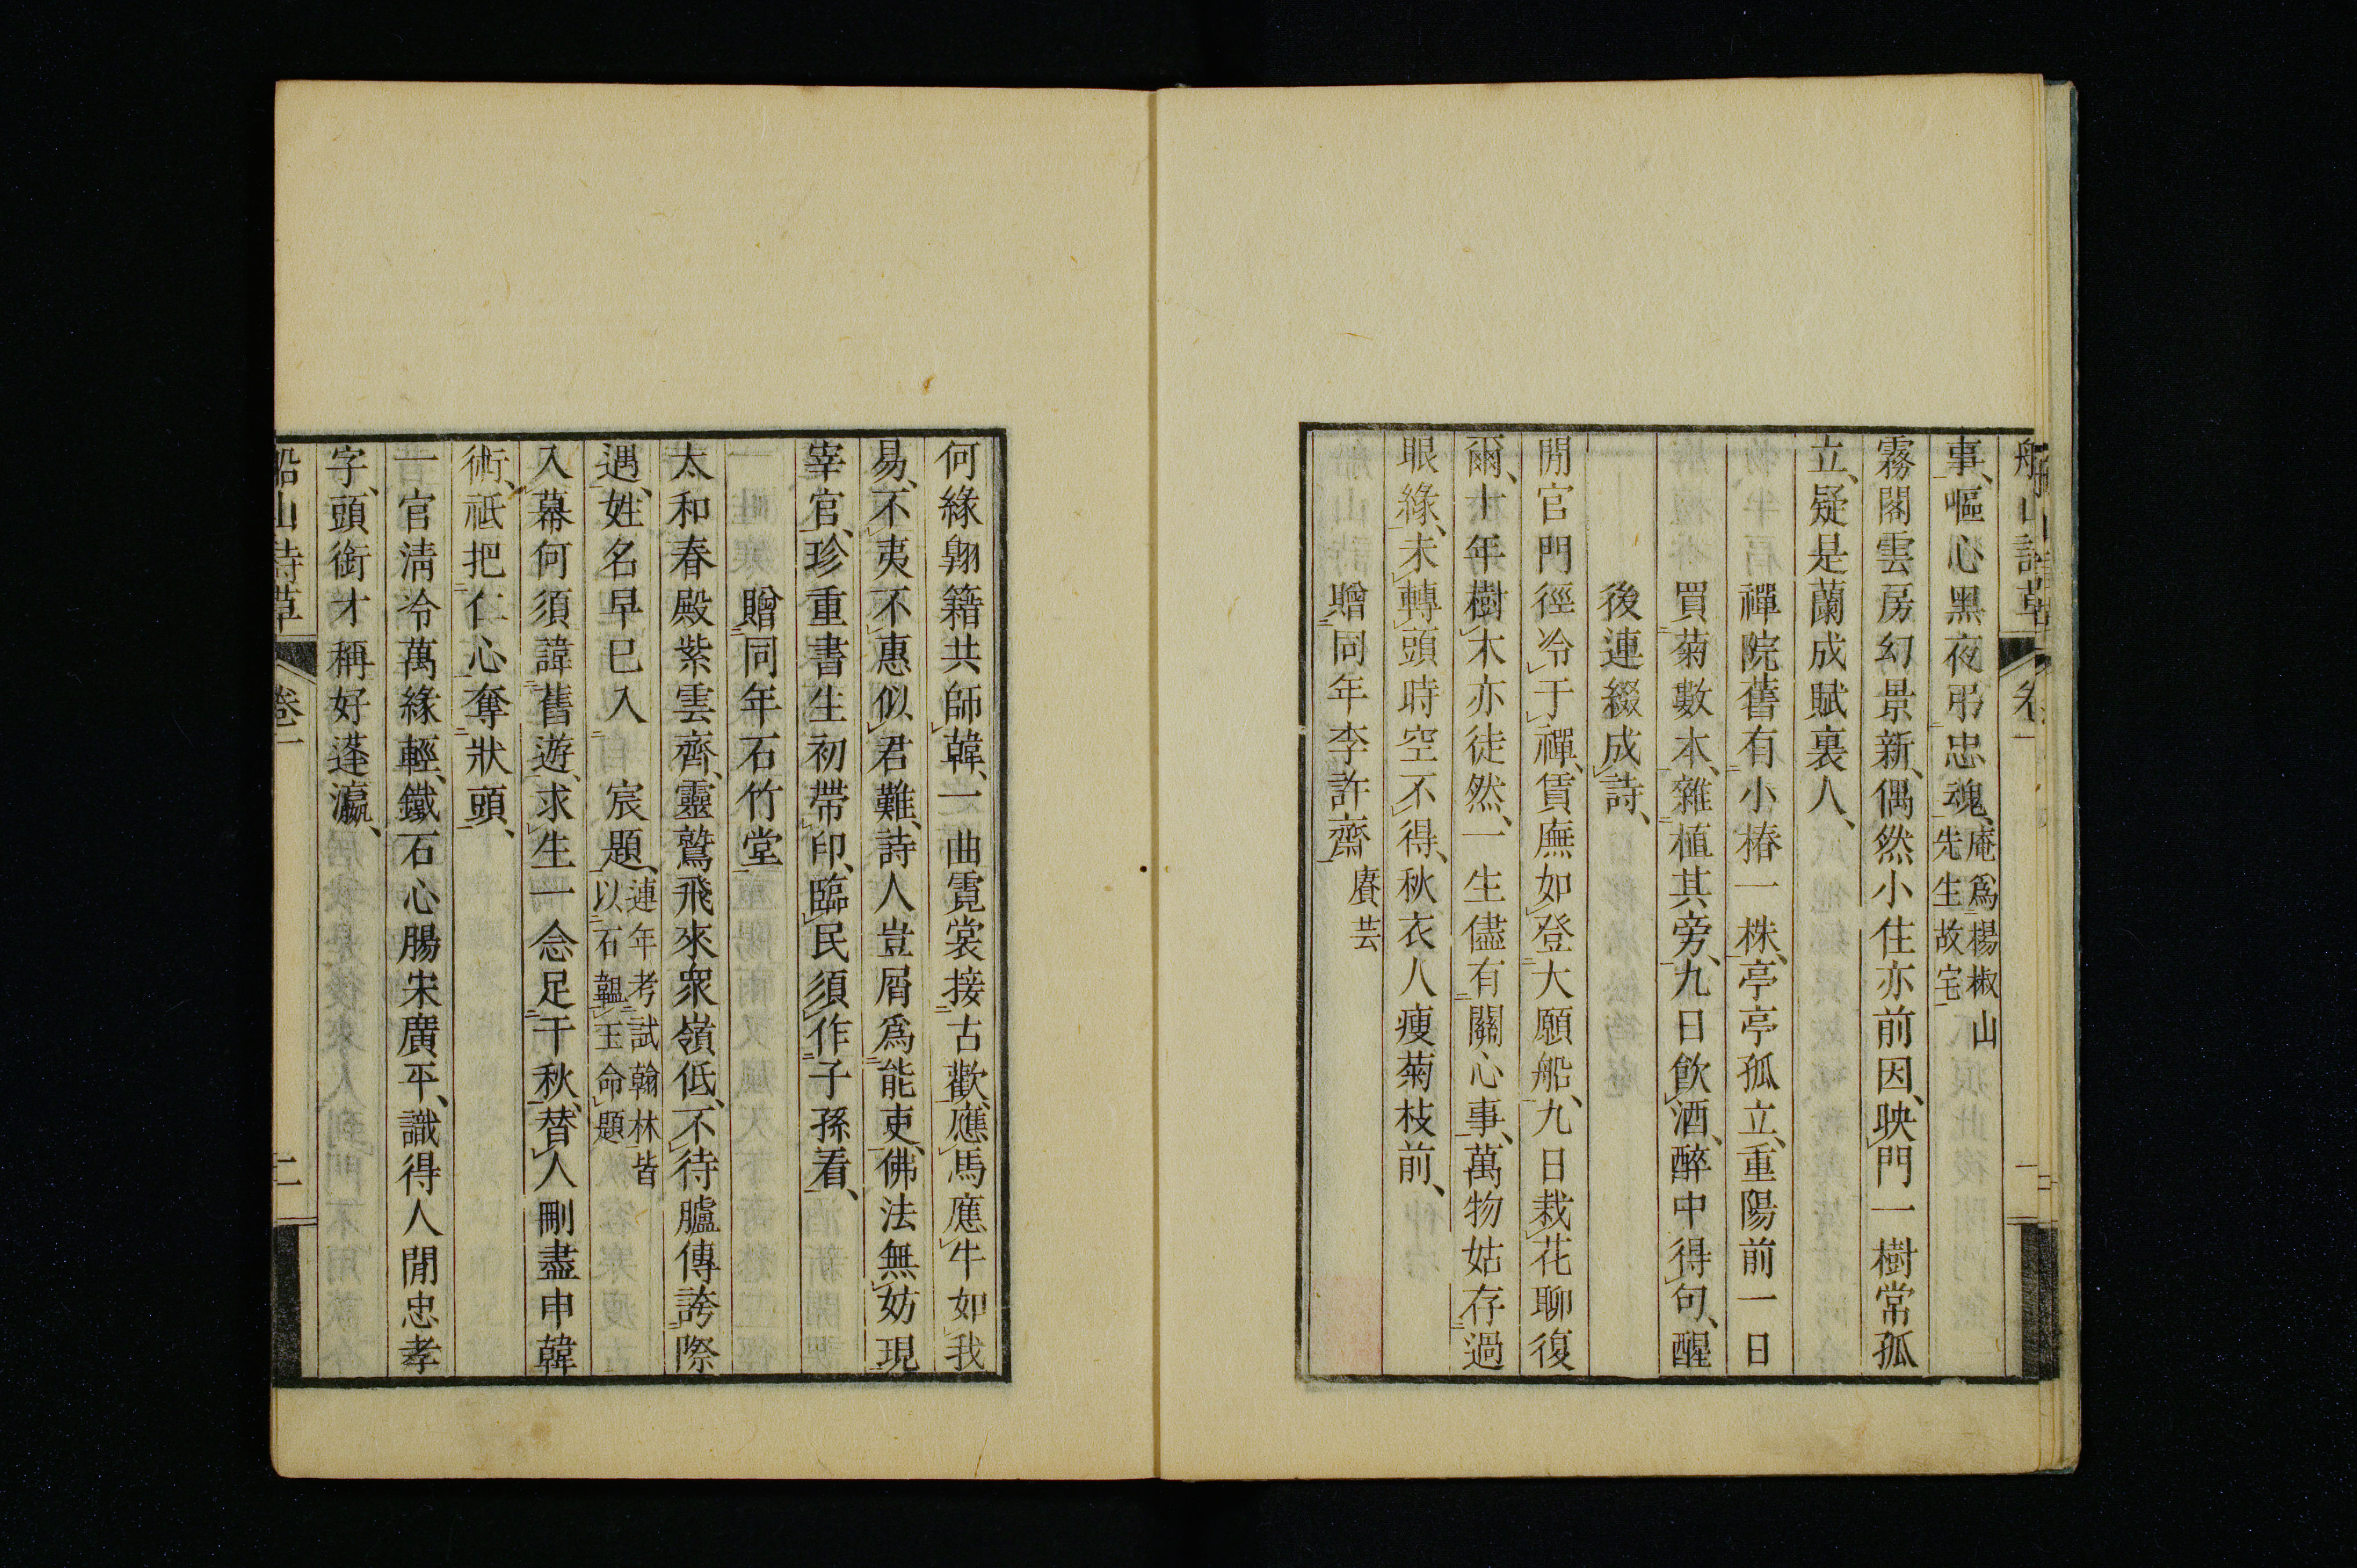 船山詩草 卷一 二
事、嘔心黑夜弔忠魂、庵爲楊椒山先生故宅
霧閣雲房幻景新、偶然小住亦前因、映門一樹常孤
立、疑是蘭成賦裏人、
禪院舊有小椿一株、亭亭孤立、重陽前一日
買菊數本、雜植其旁、九日飮酒、醉中得句、醒
後連綴成詩、
閒官門徑冷于禪、賃廡如登大願船、九日栽花聊復
爾、十年樹木亦徒然、一生儘有關心事、萬物姑存過
眼緣、未轉頭時空不得、秋衣人瘦菊枝前、
贈同年李許齋賡芸
何緣翺籍共師韓、一曲霓裳接古歡、應馬應牛如我
易、不夷不惠似君難、詩人豈屑爲能吏、佛法無妨現
宰官、珍重書生初帶印、臨民須作子孫看、
贈同年石竹堂
太和春殿紫雲齊、靈鷲飛來衆嶺低、不待臚傳誇際
遇、姓名早已入 宸題、連年考試翰林皆以石韞玉命題
入幕何須諱舊遊、求生一念足千秋、替人刪盡申韓
術、祇把仁心奪狀頭、
一官淸冷萬緣輕、鐵石心腸宋廣平、識得人閒忠孝
字、頭銜才稱好蓬瀛、
船山詩草 卷一 二